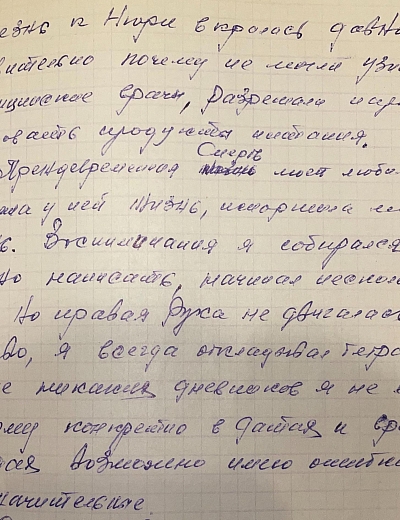 езнь к Нюре вкралась давно
вительно почему не могли узн
ицинские врачи, разрешали упо
овать продукты питания.
Преждевременная Смерть моей люби
ала у ней жизнь, испортила
ь. Воспоминания я собирался
но написать, начинал неско
Но правая рука не двигалась
во, я всегда откладывал тетра
е никаких дневников я не
ому конкретно в датах и вр
ах возможно имею ошибки
начительные.